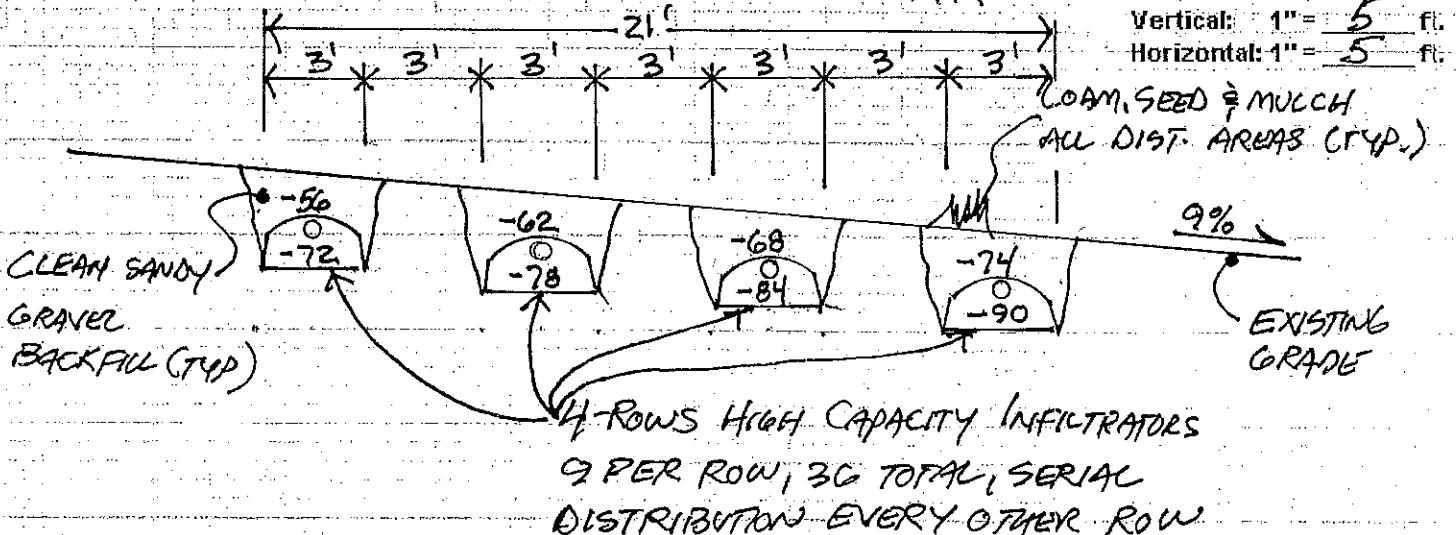 Vertical: 1" = 5 ft.
Horizontal: 1" = 5 ft.
21'
3' 3' 3' 3' 3' 3' 3'
LOAM, SEED & MULCH
ALL DIST. AREAS (TYP.)
-56
-72
-62
-78
-68
-84
-74
-90
9%
CLEAN SANDY
GRAVEL
BACKFILL (TYP)
EXISTING
GRADE
4-ROWS HIGH CAPACITY INFILTRATORS
9 PER ROW, 36 TOTAL, SERIAL
DISTRIBUTION EVERY OTHER ROW